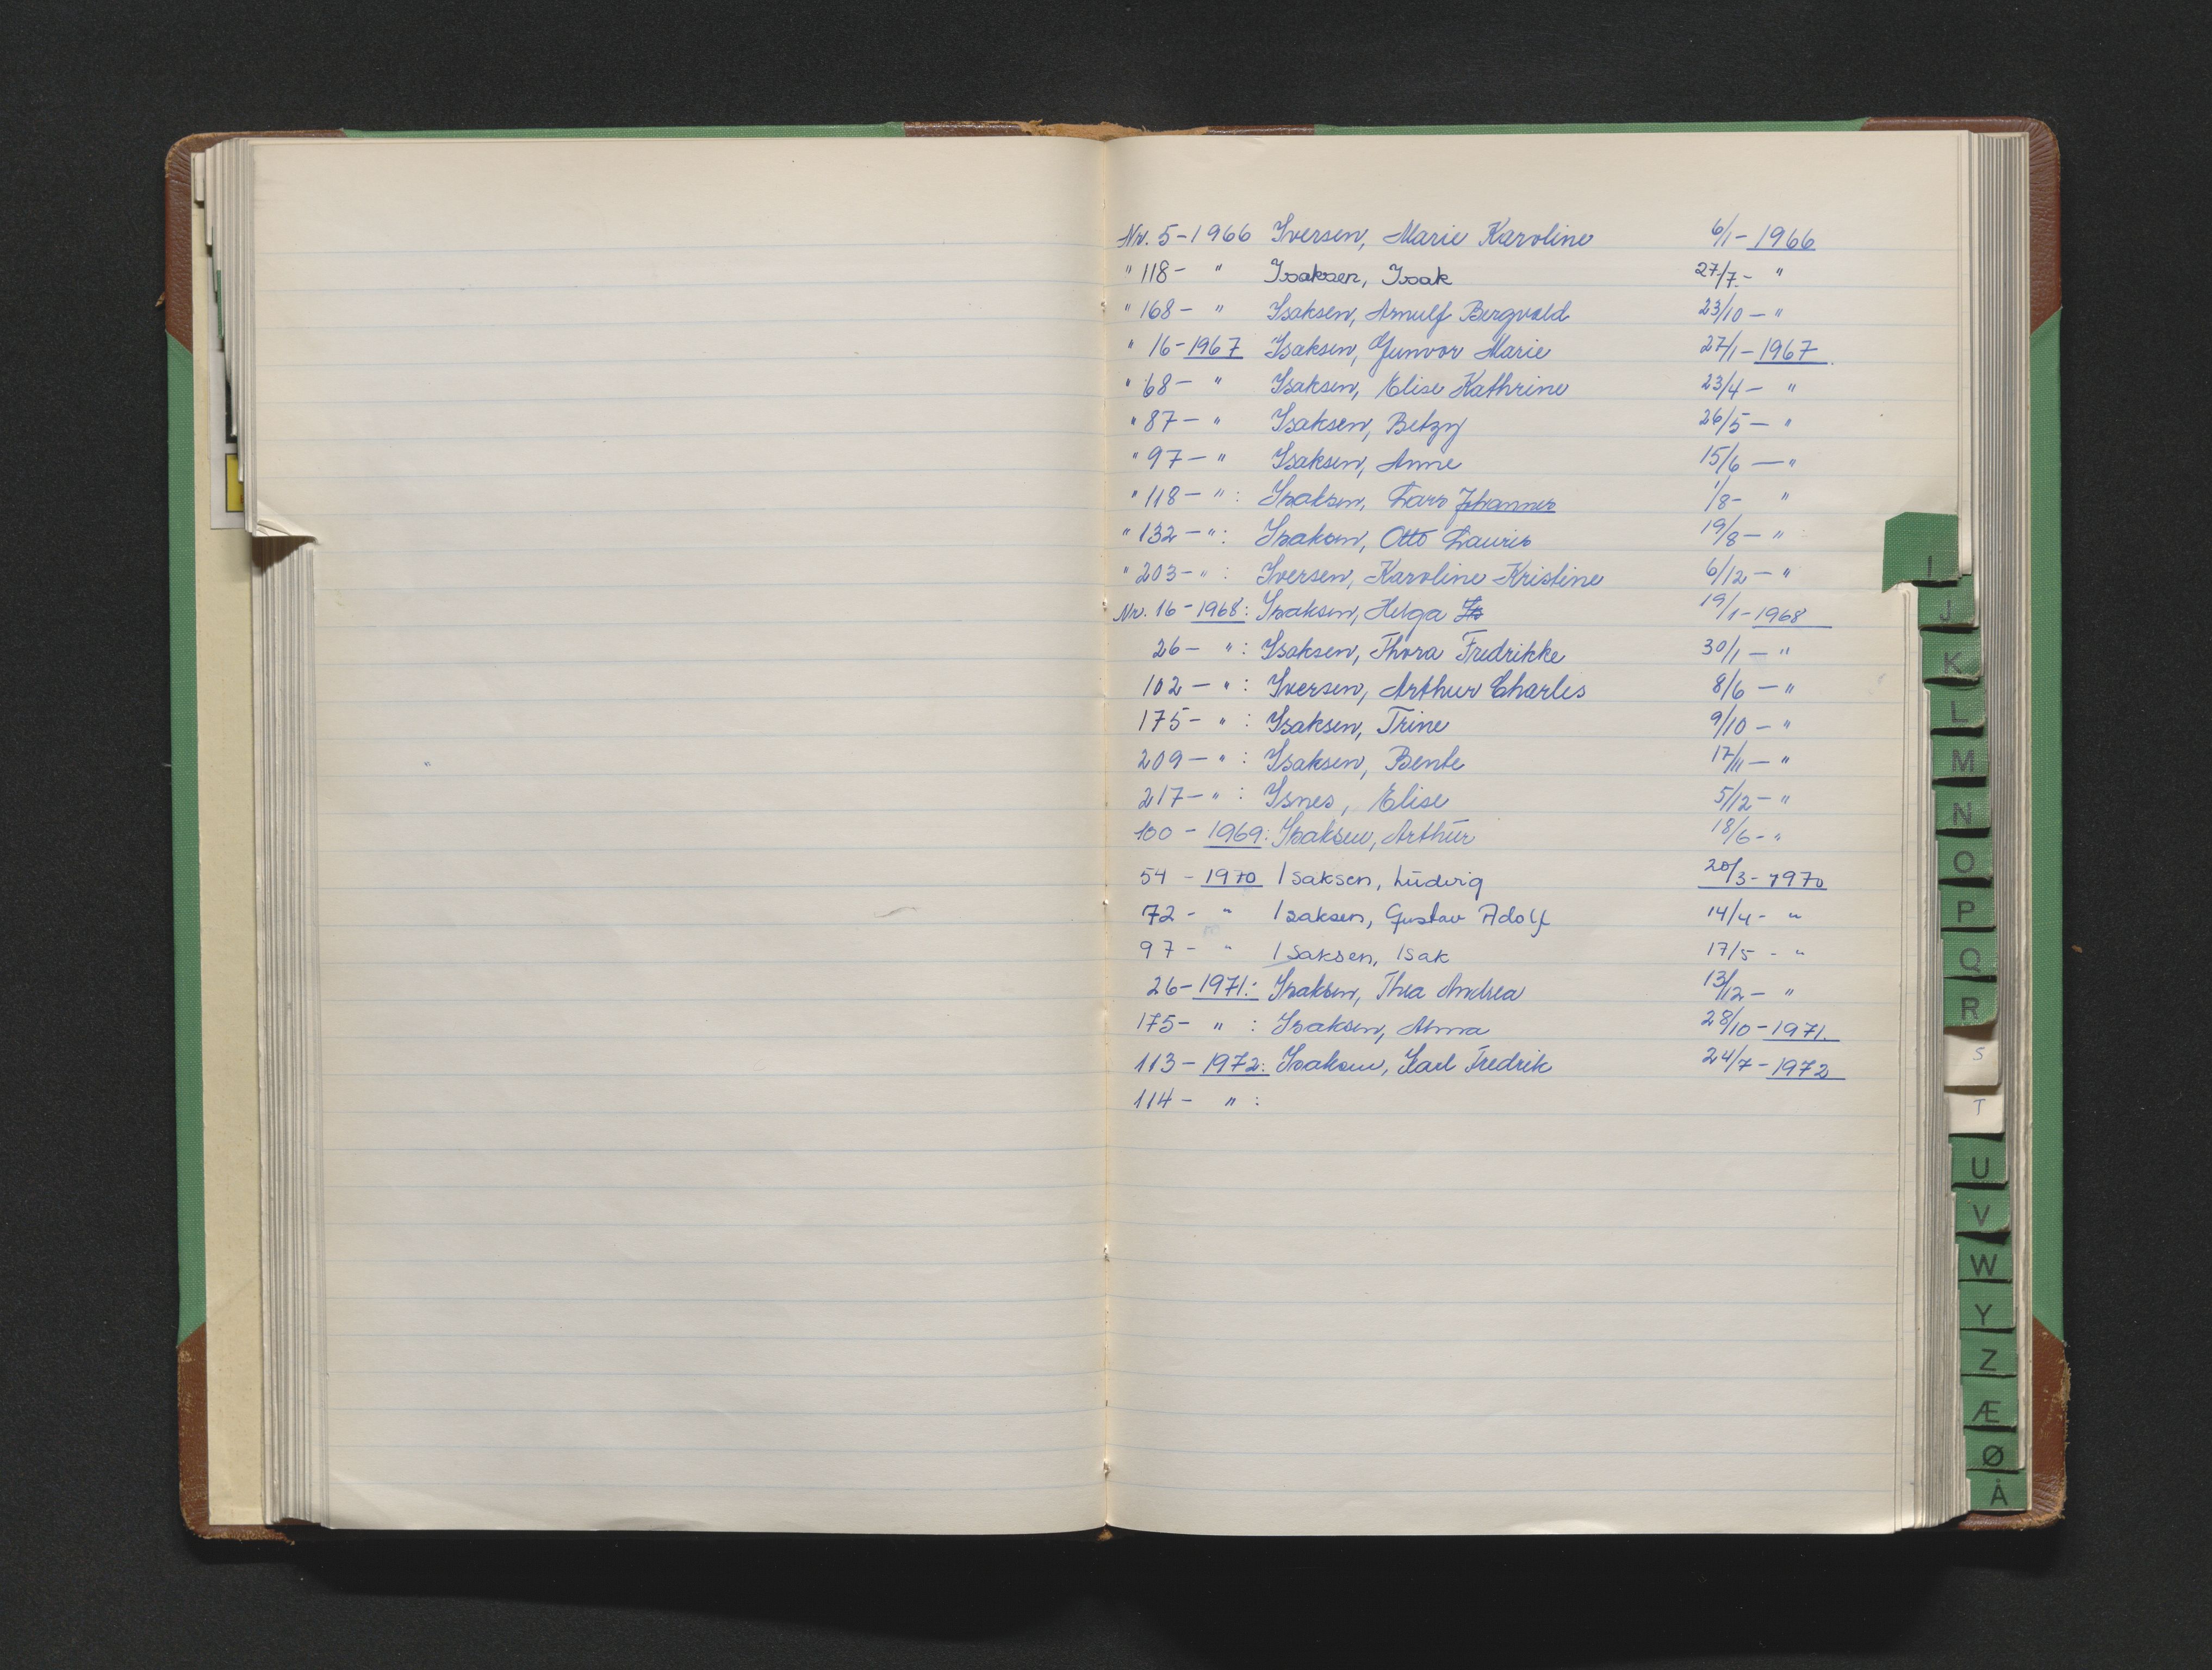 Nr. 5-1966 Iversen, Marie Karoline 6/1-1966
" 118- " Isaksen, Isak 27/7- "
" 168- " Isaksen, Arnulf Bergvald 23/10 - "
" 16-1967 Isaksen, Gunvor Marie 27/1-1967.
" 68- " Isaksen, Elise Kathrine 23/4- "
" 87- " Isaksen, Betzy 26/5- "
" 97- " Isaksen, Anne 15/6 - "
" 118- ": Isaksen, Lars Johannes 1/8- "
" 132- ": Isaksen, Otto Lauris 19/8- "
" 203- ": Iversen, Karoline Kristine 6/12- "
Nr. 16-1968: Isaksen, Helga Is 19/1-1968
26- ": Isaksen, Thora Fredrikke 30/1- "
102- ": Iversen, Arthur Charles 8/6- "
175- ": Isaksen, Trine 9/10- "
209- ": Isaksen, Bente 17/11- "
217- ": Isnes, Elise 5/12- "
100-1969: Isaksen, Arthur 18/6- "
54-1970 Isaksen, Ludvig 20/3-1970
72- " Isaksen, Gustav Adolf 14/4- "
97- " Isaksen, Isak 17/5- "
26-1971: Isaksen, Thea Andrea 13/12- "
175- " : Isaksen, 28/10-1971.
113-1972: Isaksen, Karl Fredrik 24/7-1972
114- " :
I
J
K
L
M
N
O
P
Q
R
S
T
U
V
W
Y
Z
Æ
Ø
Å